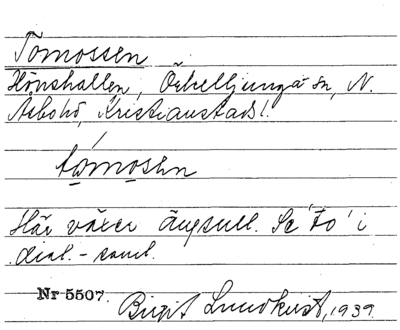 Tomossen
Hönshallen, Örkelljunga sn, N.
Åsbohd, Kristianstads l.
tomosən
Här växer ängsull. Se 'to' i
dial.-saml.
Nr 5507.
Birgit Lundkvist, 1939.